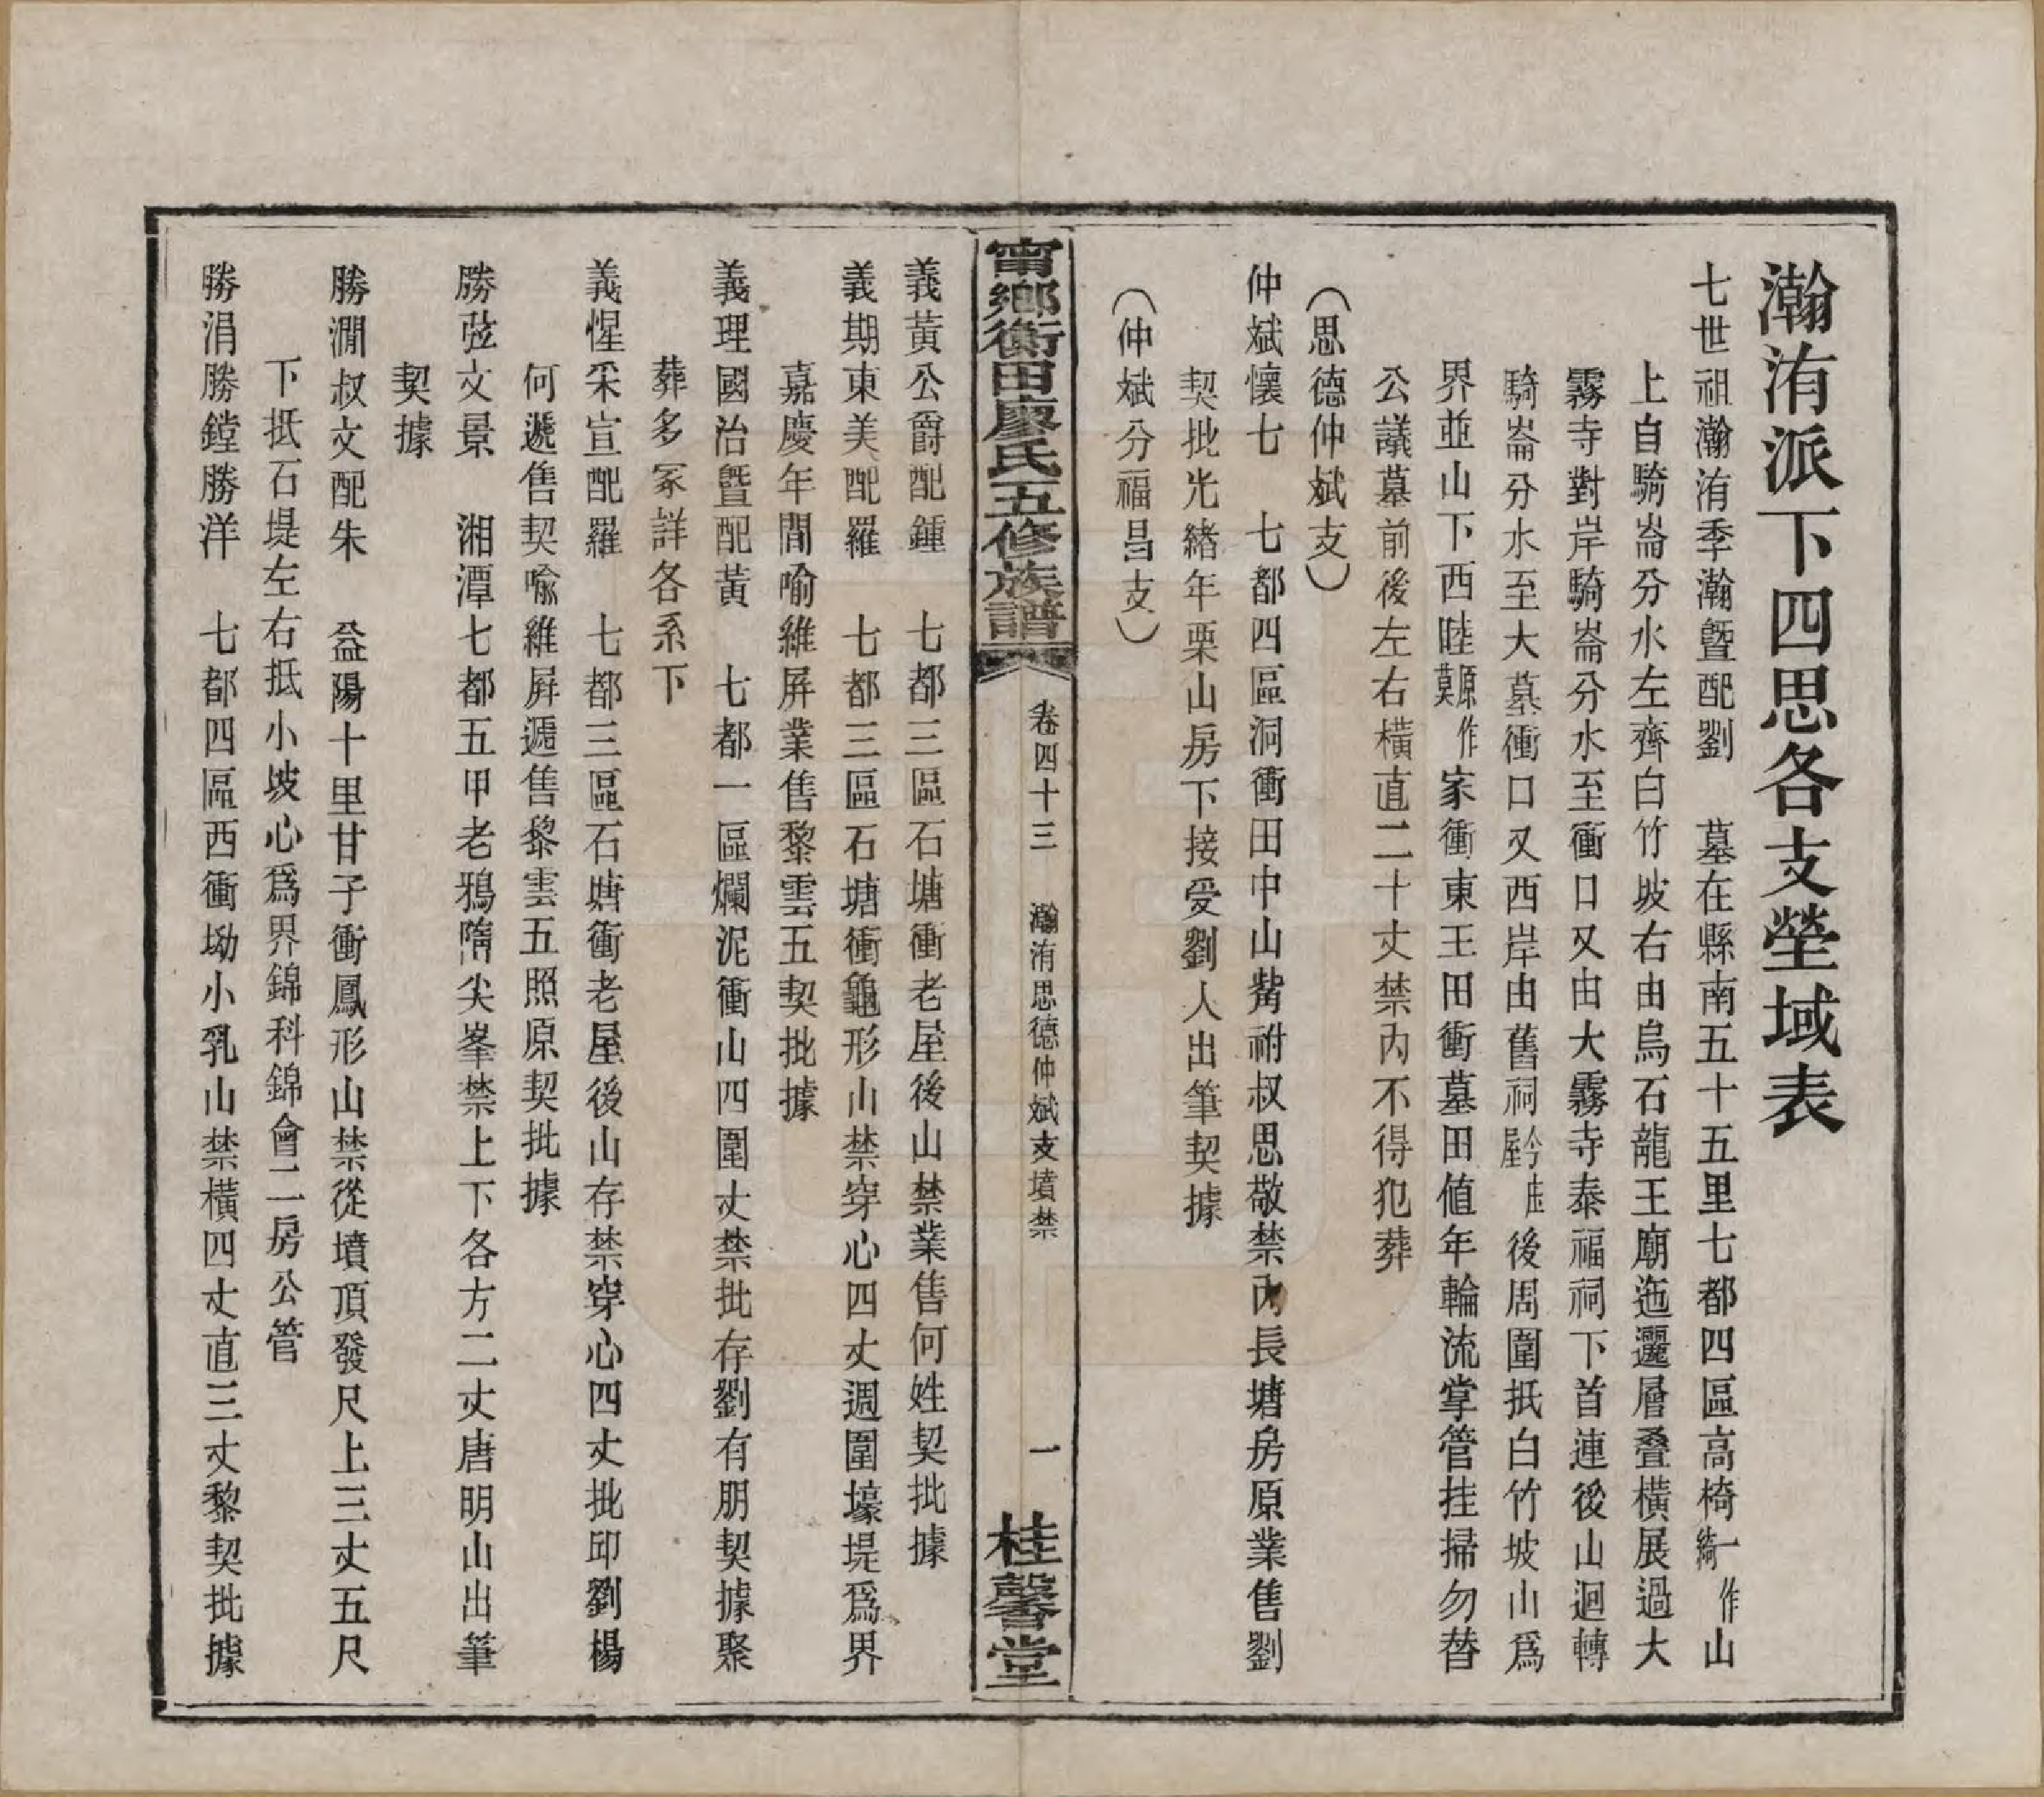 瀚洧派下四思各支塋域表
七世祖瀚洧季瀚暨配劉　墓在縣南五十五里七都四區高椅一作綺山
上自騎崙分水左齊白竹坡右由烏石龍王廟迤邐層疊橫展過大
霧寺對岸騎崙分水至衝口又由大霧寺泰福祠下首連後山迴轉
騎崙分水至大墓衝口又西岸由舊祠今庄屋後周圍抵白竹坡山爲
界並山下西睦原作莫家衝東王田衝墓田値年輪流掌管挂掃勿替
公議墓前後左右橫直二十丈禁內不得犯葬
（思德仲斌支）
仲斌懷七　七都四區洞衝田中山觜祔叔思敬禁內長塘房原業售劉
契批光緒年栗山房下接受劉人出筆契據
（仲斌分福昌支）
甯鄉衡田廖氏五修族譜　卷四十三　瀚洧思德仲斌支墳禁　一　桂馨堂
義黃公爵配鍾　七都三區石塘衝老屋後山禁業售何姓契批據
義期東美配羅　七都三區石塘衝龜形山禁穿心四丈週圍壕堤爲界
嘉慶年間喻維屛業售黎雲五契批據
義理國治暨配黃　七都一區爛泥衝山四圍丈禁批存劉有朋契據聚
葬多冢詳各系下
義惺采宣配羅　七都三區石塘衝老屋後山存禁穿心四丈批邱劉楊
何遞售契喩維屛遞售黎雲五照原契批據
勝弦文景　湘潭七都五甲老鴉隋尖峯禁上下各方二丈唐明山出筆
契據
勝澗叔文配朱　益陽十里甘子衝鳳形山禁從墳頂發尺上三丈五尺
下抵石堤左右抵小坡心爲界錦科錦會二房公管
勝涓勝鏜勝洋　七都四區西衝坳小乳山禁橫四丈直三丈黎契批據